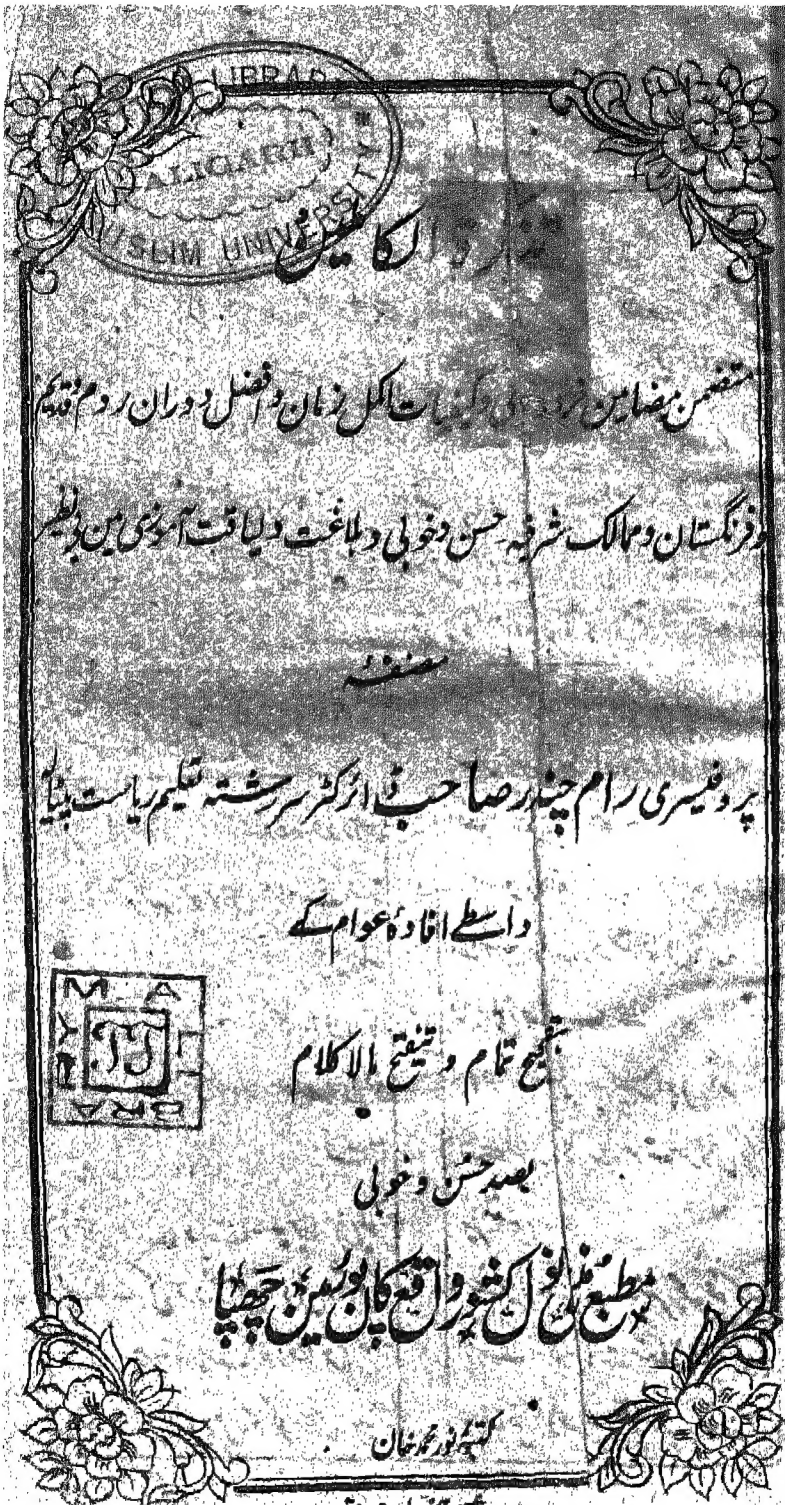 LIBRARY
ALIGARH
MUSLIM UNIVERSITY
تذکرۃ الکاملین
متضمن مضامین و کیفیات اکمل زمان و افضل دوران روم قدیم
و فرنگستان و ممالک شرقیہ حسن و خوبی و بلاغت و لیاقت آموزی مین بے نظیر
مصنفہ
پروفیسری رام چندر صاحب ڈائرکٹر سررشتہ تعلیم ریاست پٹیالہ
واسطے افادۂ عوام کے
بتصحیح تمام و تنقیح مالا کلام
بصد حسن و خوبی
مطبع منشی نول کشور واقع کانپور مین چھپا
کتبہ نور محمد خان